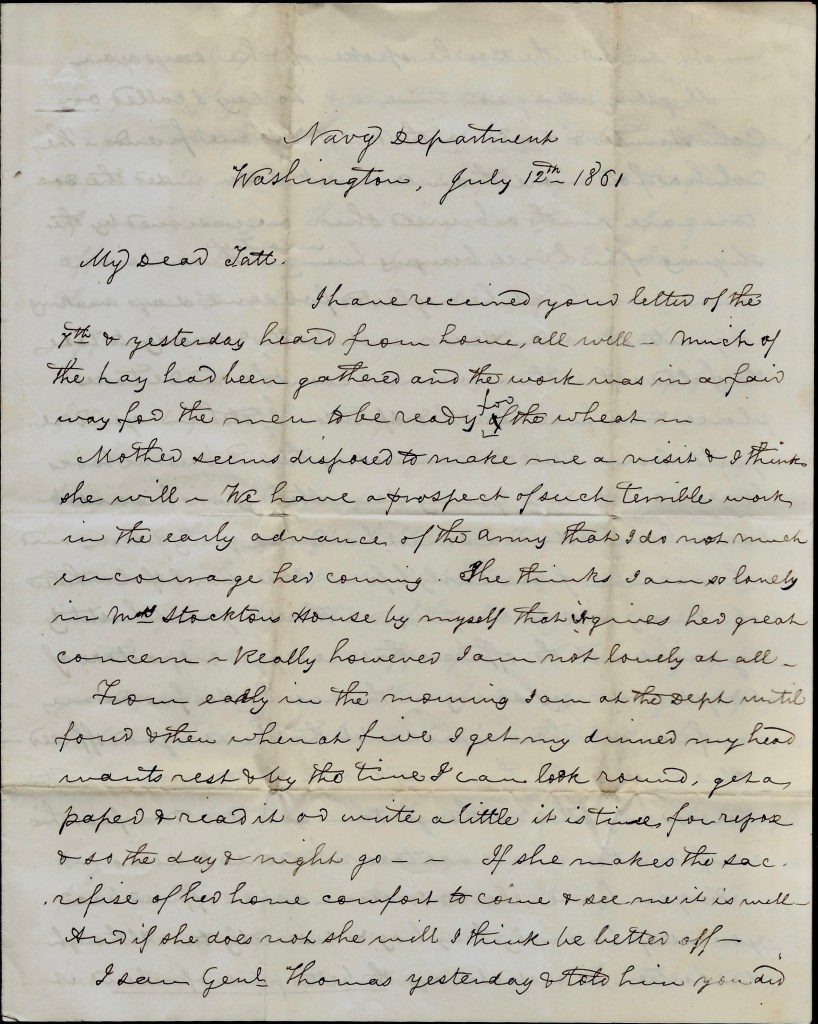 Navy Department
Washington, July 12th 1861
My Dear Tatt.
I have received your letter of the
7th & yesterday heard from home, all well – Much of
the hay had been gathered and the work was in a fair
way for the men to be ready for the wheat
Mother seems disposed to make me a visit & I think
she will – We have a prospect of such terrible work
in the early advance of the Army that I do not much
encourage her coming. She thinks I am so lonely
in Mrs Stocktons House by myself that it gives her great
concern – Really however I am not lonely at all –
From early in the morning I am at the Dept until
four & then when at five I get my dinner my head
wants rest & by the time I can look round, get a
paper & read it or write a little it is time for repose
& so the day & night go – – If she makes the sac-
rifise of her home comfort to come & see me it is well –
And if she does not she will I think be better off –
I saw Genl. Thomas yesterday & told him you did